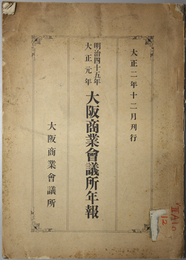 大正二年十二月刊行
明治四十五年
大正元年
大阪商業會議所年報
大阪商業會議所